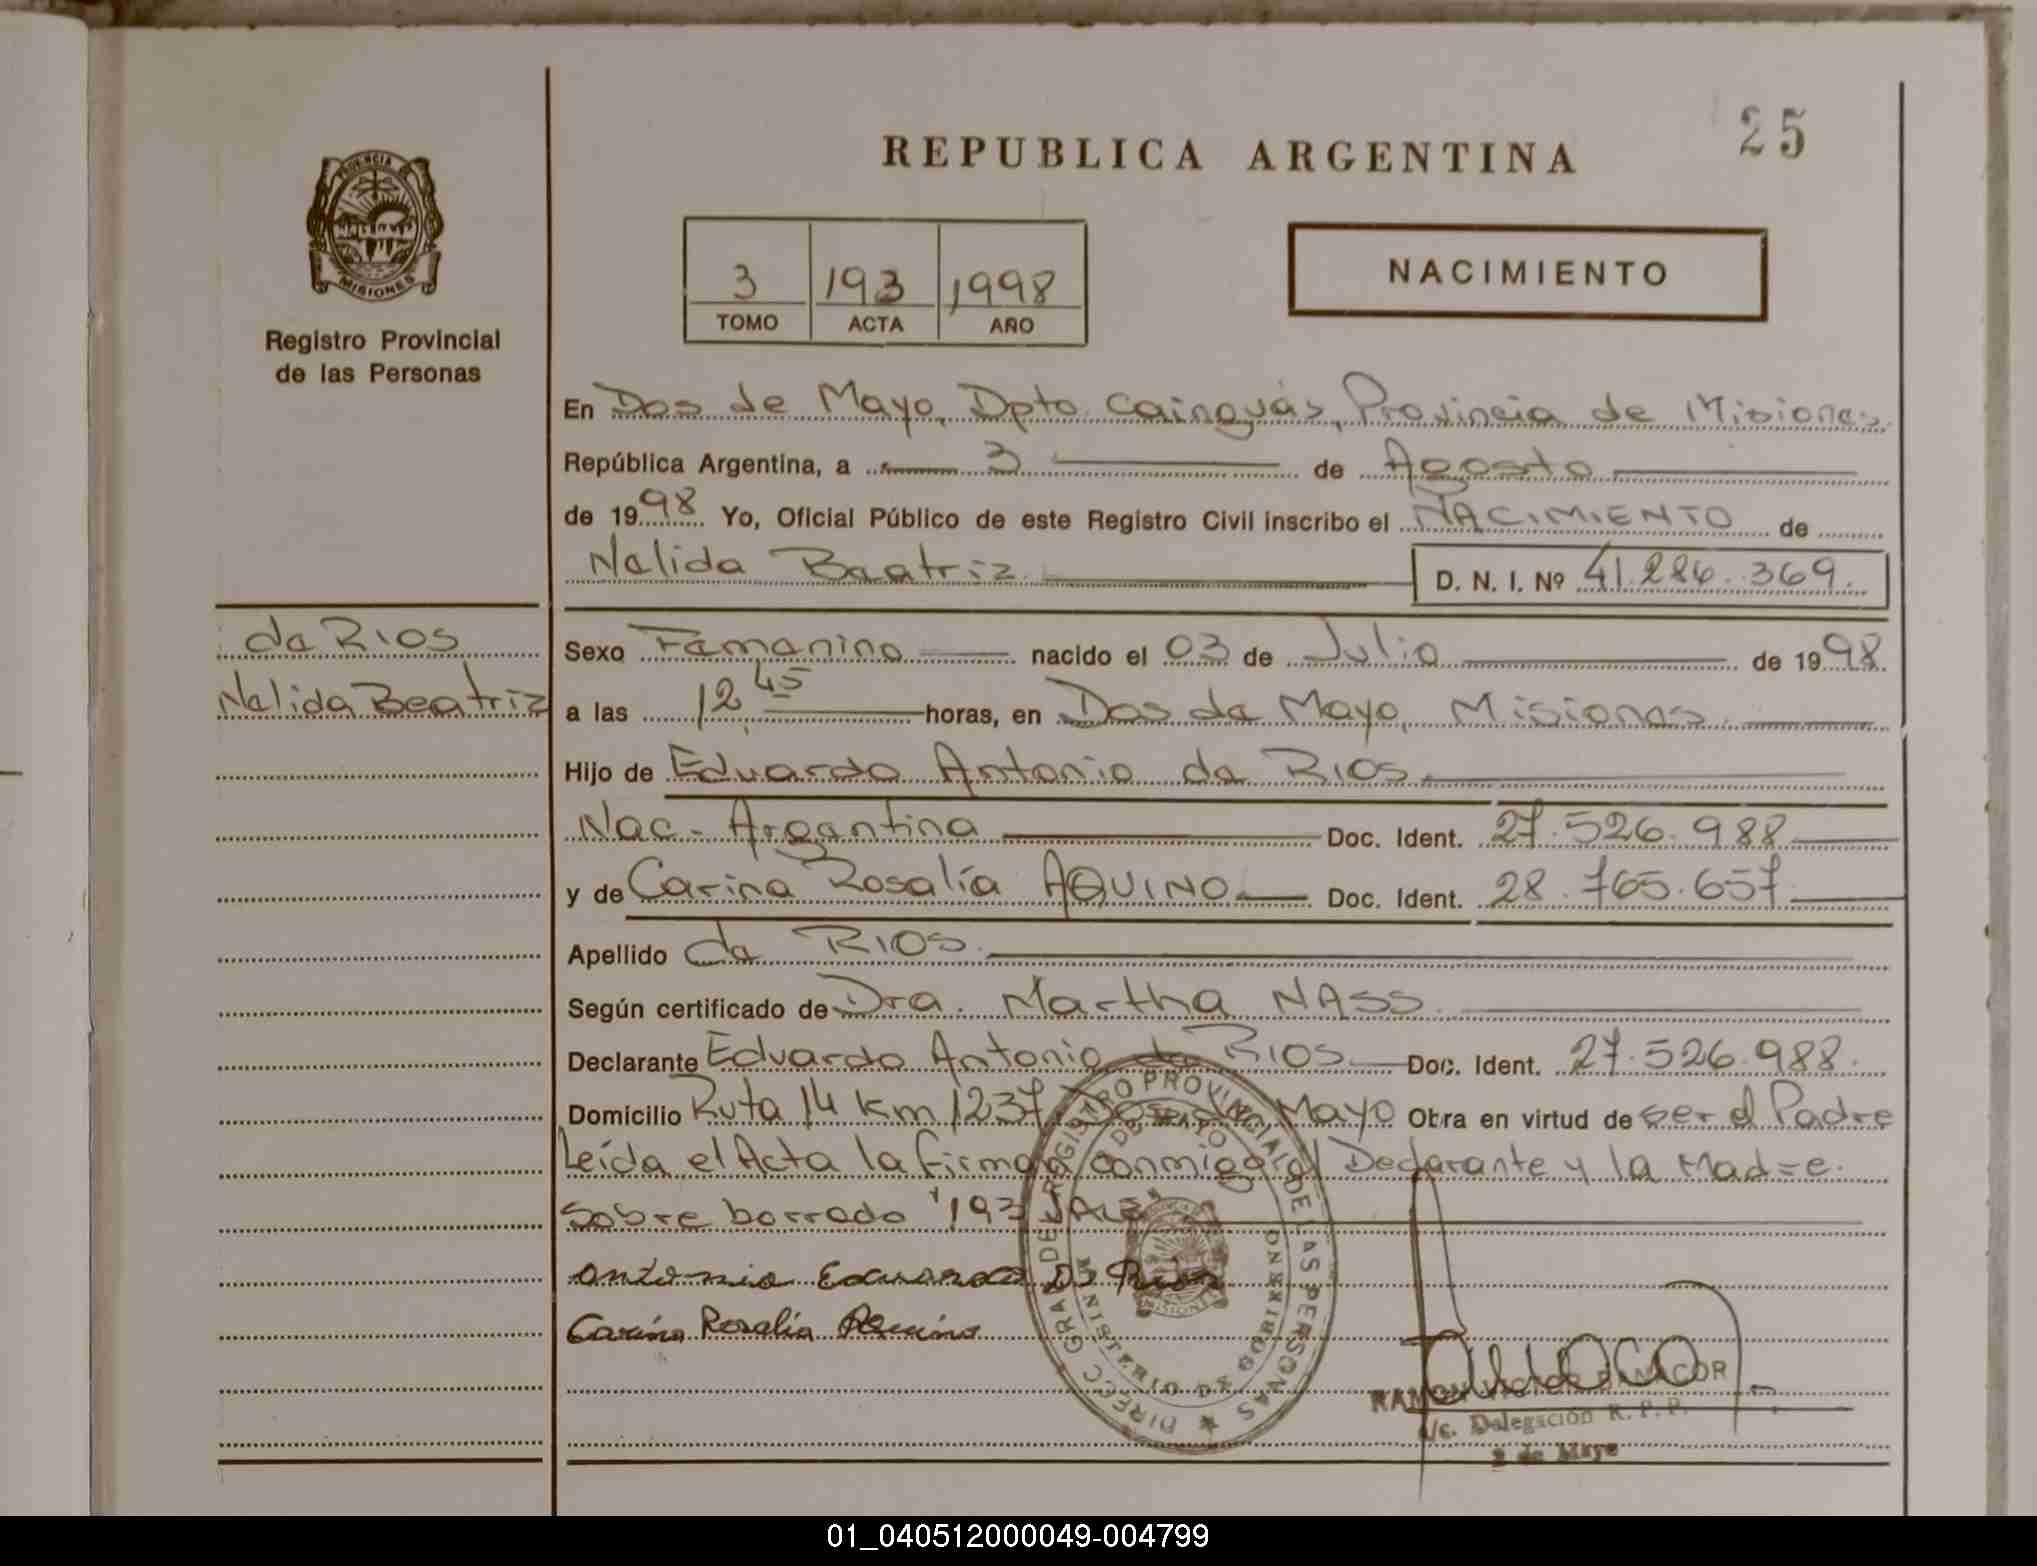 25
REPUBLICA ARGENTINA
PROVINCIA
MISIONES
Registro Provincial
de las Personas
3 193 1998
TOMO ACTA AÑO
NACIMIENTO
En Dos de Mayo, Dpto Cainguás, Provincia de Misiones
República Argentina, a 3 de Agosto
de 1998 Yo, Oficial Público de este Registro Civil inscribo el NACIMIENTO de
Nelida Beatriz D. N. I. Nº 41.286.369.
de RIOS
Nelida Beatriz
Sexo Femenino nacido el 03 de Julio de 1998.
a las 12 45 horas, en Dos de Mayo, Misiones
Hijo de Eduardo Antonio de RIOS
Nac. Argentina Doc. Ident. 27.526.988
y de Carina Rosalía AQUINO Doc. Ident. 28.765.657
Apellido de RIOS.
Según certificado de Dra. Martha NASS.
Declarante Eduardo Antonio de RIOS Doc. Ident. 27.526.988.
Domicilio Ruta 14 Km 1237 Dos de Mayo Obra en virtud de ser el Padre
Leída el Acta la firman conmigo el Declarante y la Madre.
Sobre borrado "193 VALE"
Antonio Eduardo De Rios
Carina Rosalia Aquino
DIRECC GRAL DEL REGISTRO PROVINCIAL DE LAS PERSONAS
DOS DE MAYO
MINISTERIO DE GOBIERNO
MISIONES
RAMON
a/c. Delegación R. P. P.
2 de Mayo
01_040512000049-004799